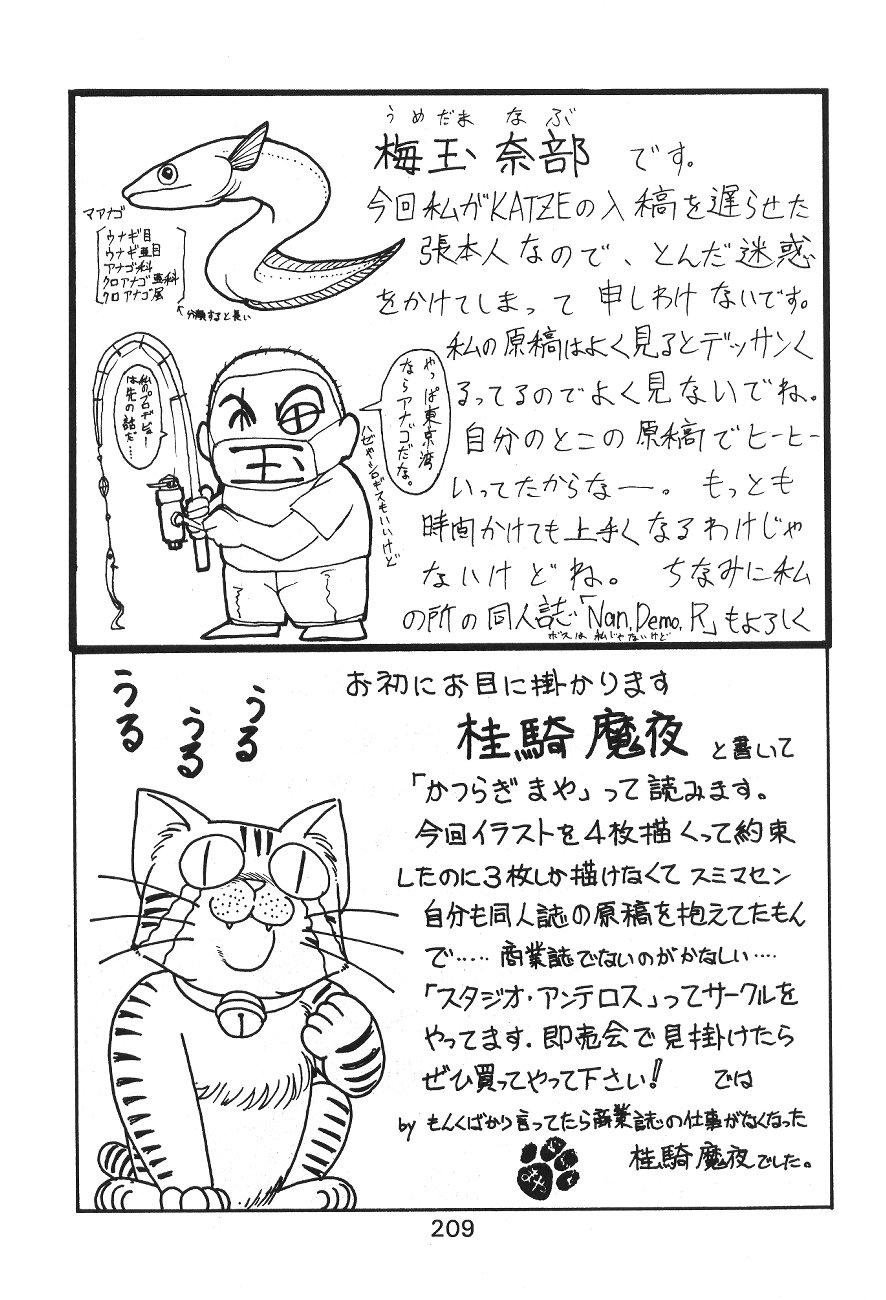 うめだま なぶ
梅玉 奈部 です。
今回私がKATZEの入稿を遅らせた
張本人なので、とんだ迷惑
をかけてしまって申しわけないです。
私の原稿はよく見るとデッサンく
るってるのでよく見ないでね。
自分のとこの原稿でヒーヒー
いってたからなー。もっとも
時間かけても上手くなるわけじゃ
ないけどね。ちなみに私
の所の同人誌「Nan.Demo.R」もよろしく
ボスは私じゃないけど
マアナゴ
ウナギ目
ウナギ亜目
アナゴ科
クロアナゴ亜科
クロアナゴ属
↖分類すると長い
やっぱ東京湾
ならアナゴだな。
ハゼやシロギスもいいけど
私のプロデビュー
は先の話だ…
玉
うる
うる
うる
お初にお目に掛かります
桂騎魔夜 と書いて
「かつらぎまや」って読みます。
今回イラストを4枚描くって約束
したのに3枚しか描けなくてスミマセン
自分も同人誌の原稿を抱えてたもん
で…… 商業誌でないのがかなしい….
「スタジオ・アンテロス」ってサークルを
やってます。即売会で見掛けたら
ぜひ買ってやって下さい! では
by もんくばかり言ってたら商業誌の仕事がなくなった
桂騎魔夜でした。
209